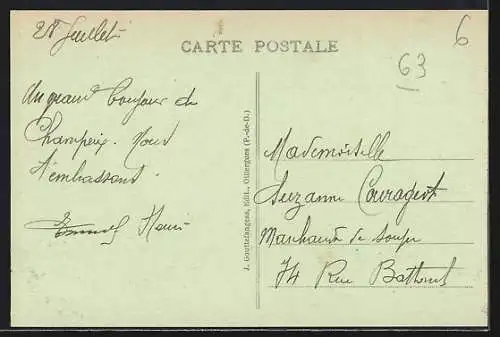 28 Juillet
CARTE POSTALE
6
63
Un grand bonjour de
Champeix. Nous
t'embrassons.
Henri
J. Gouttefangeas, Edit., Olliergues (P.-de-D.)
Mademoiselle
Suzanne Couragent
Marchand de soupe
74 Rue